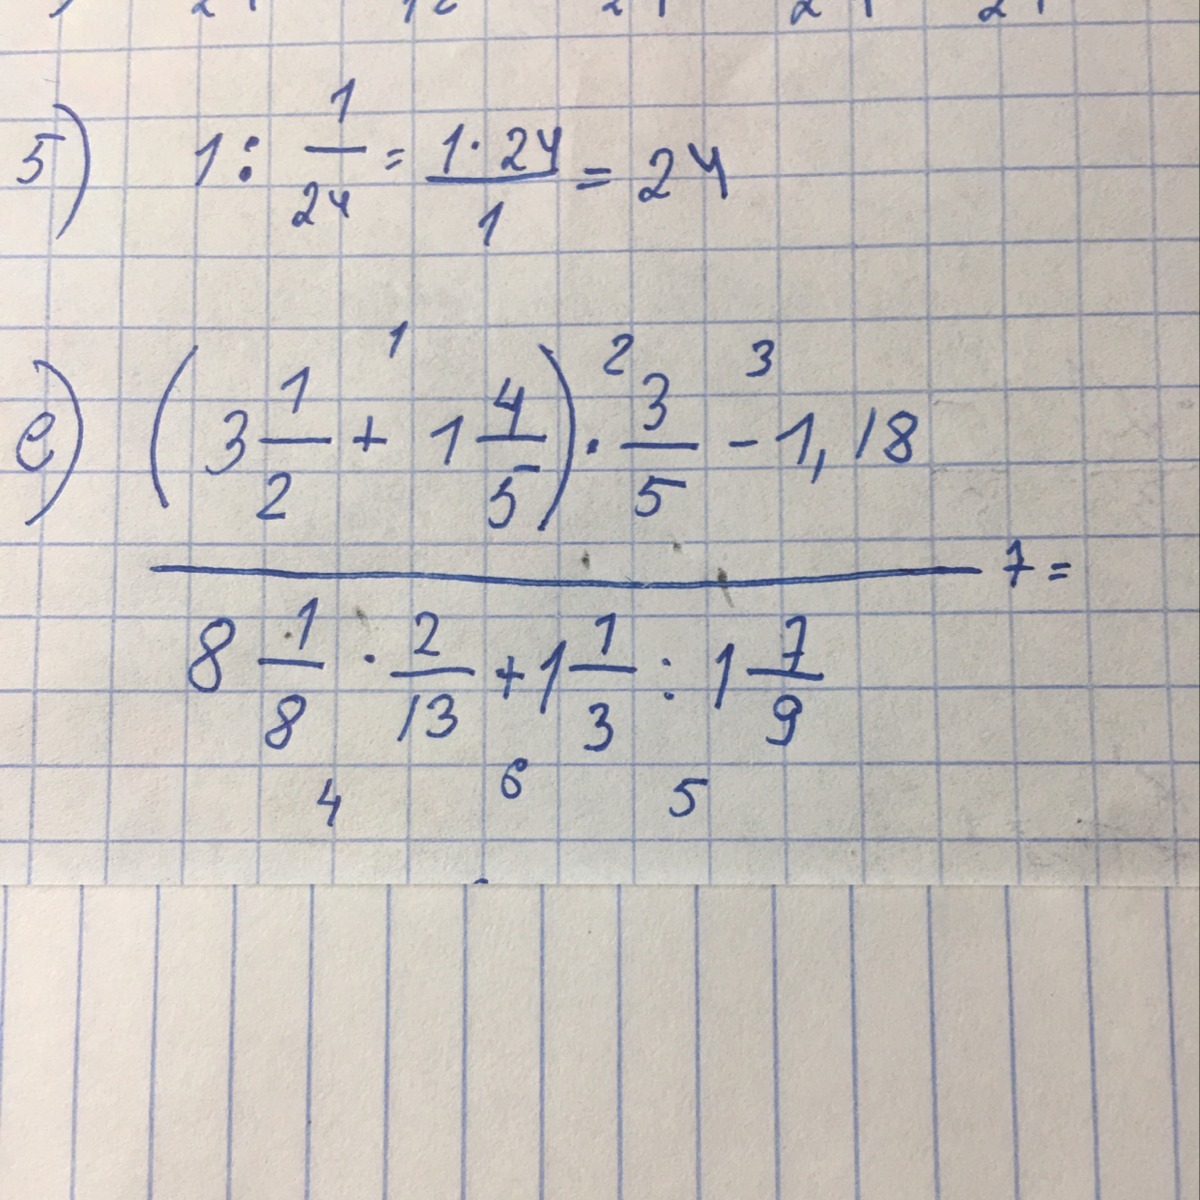 5) 1 : 1/24 = 1·24/1 = 24
1 2 3
е) (3 1/2 + 1 4/5) · 3/5 - 1,18
7 =
8 1/8 · 2/13 + 1 1/3 : 1 7/9
4 6 5